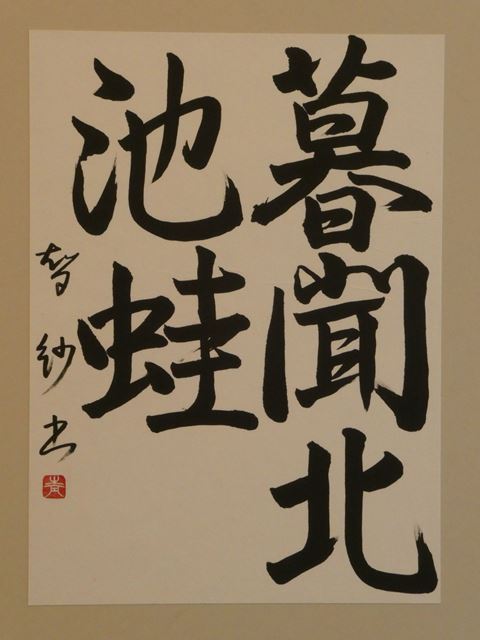 暮聞北
池蛙
智紗書
青